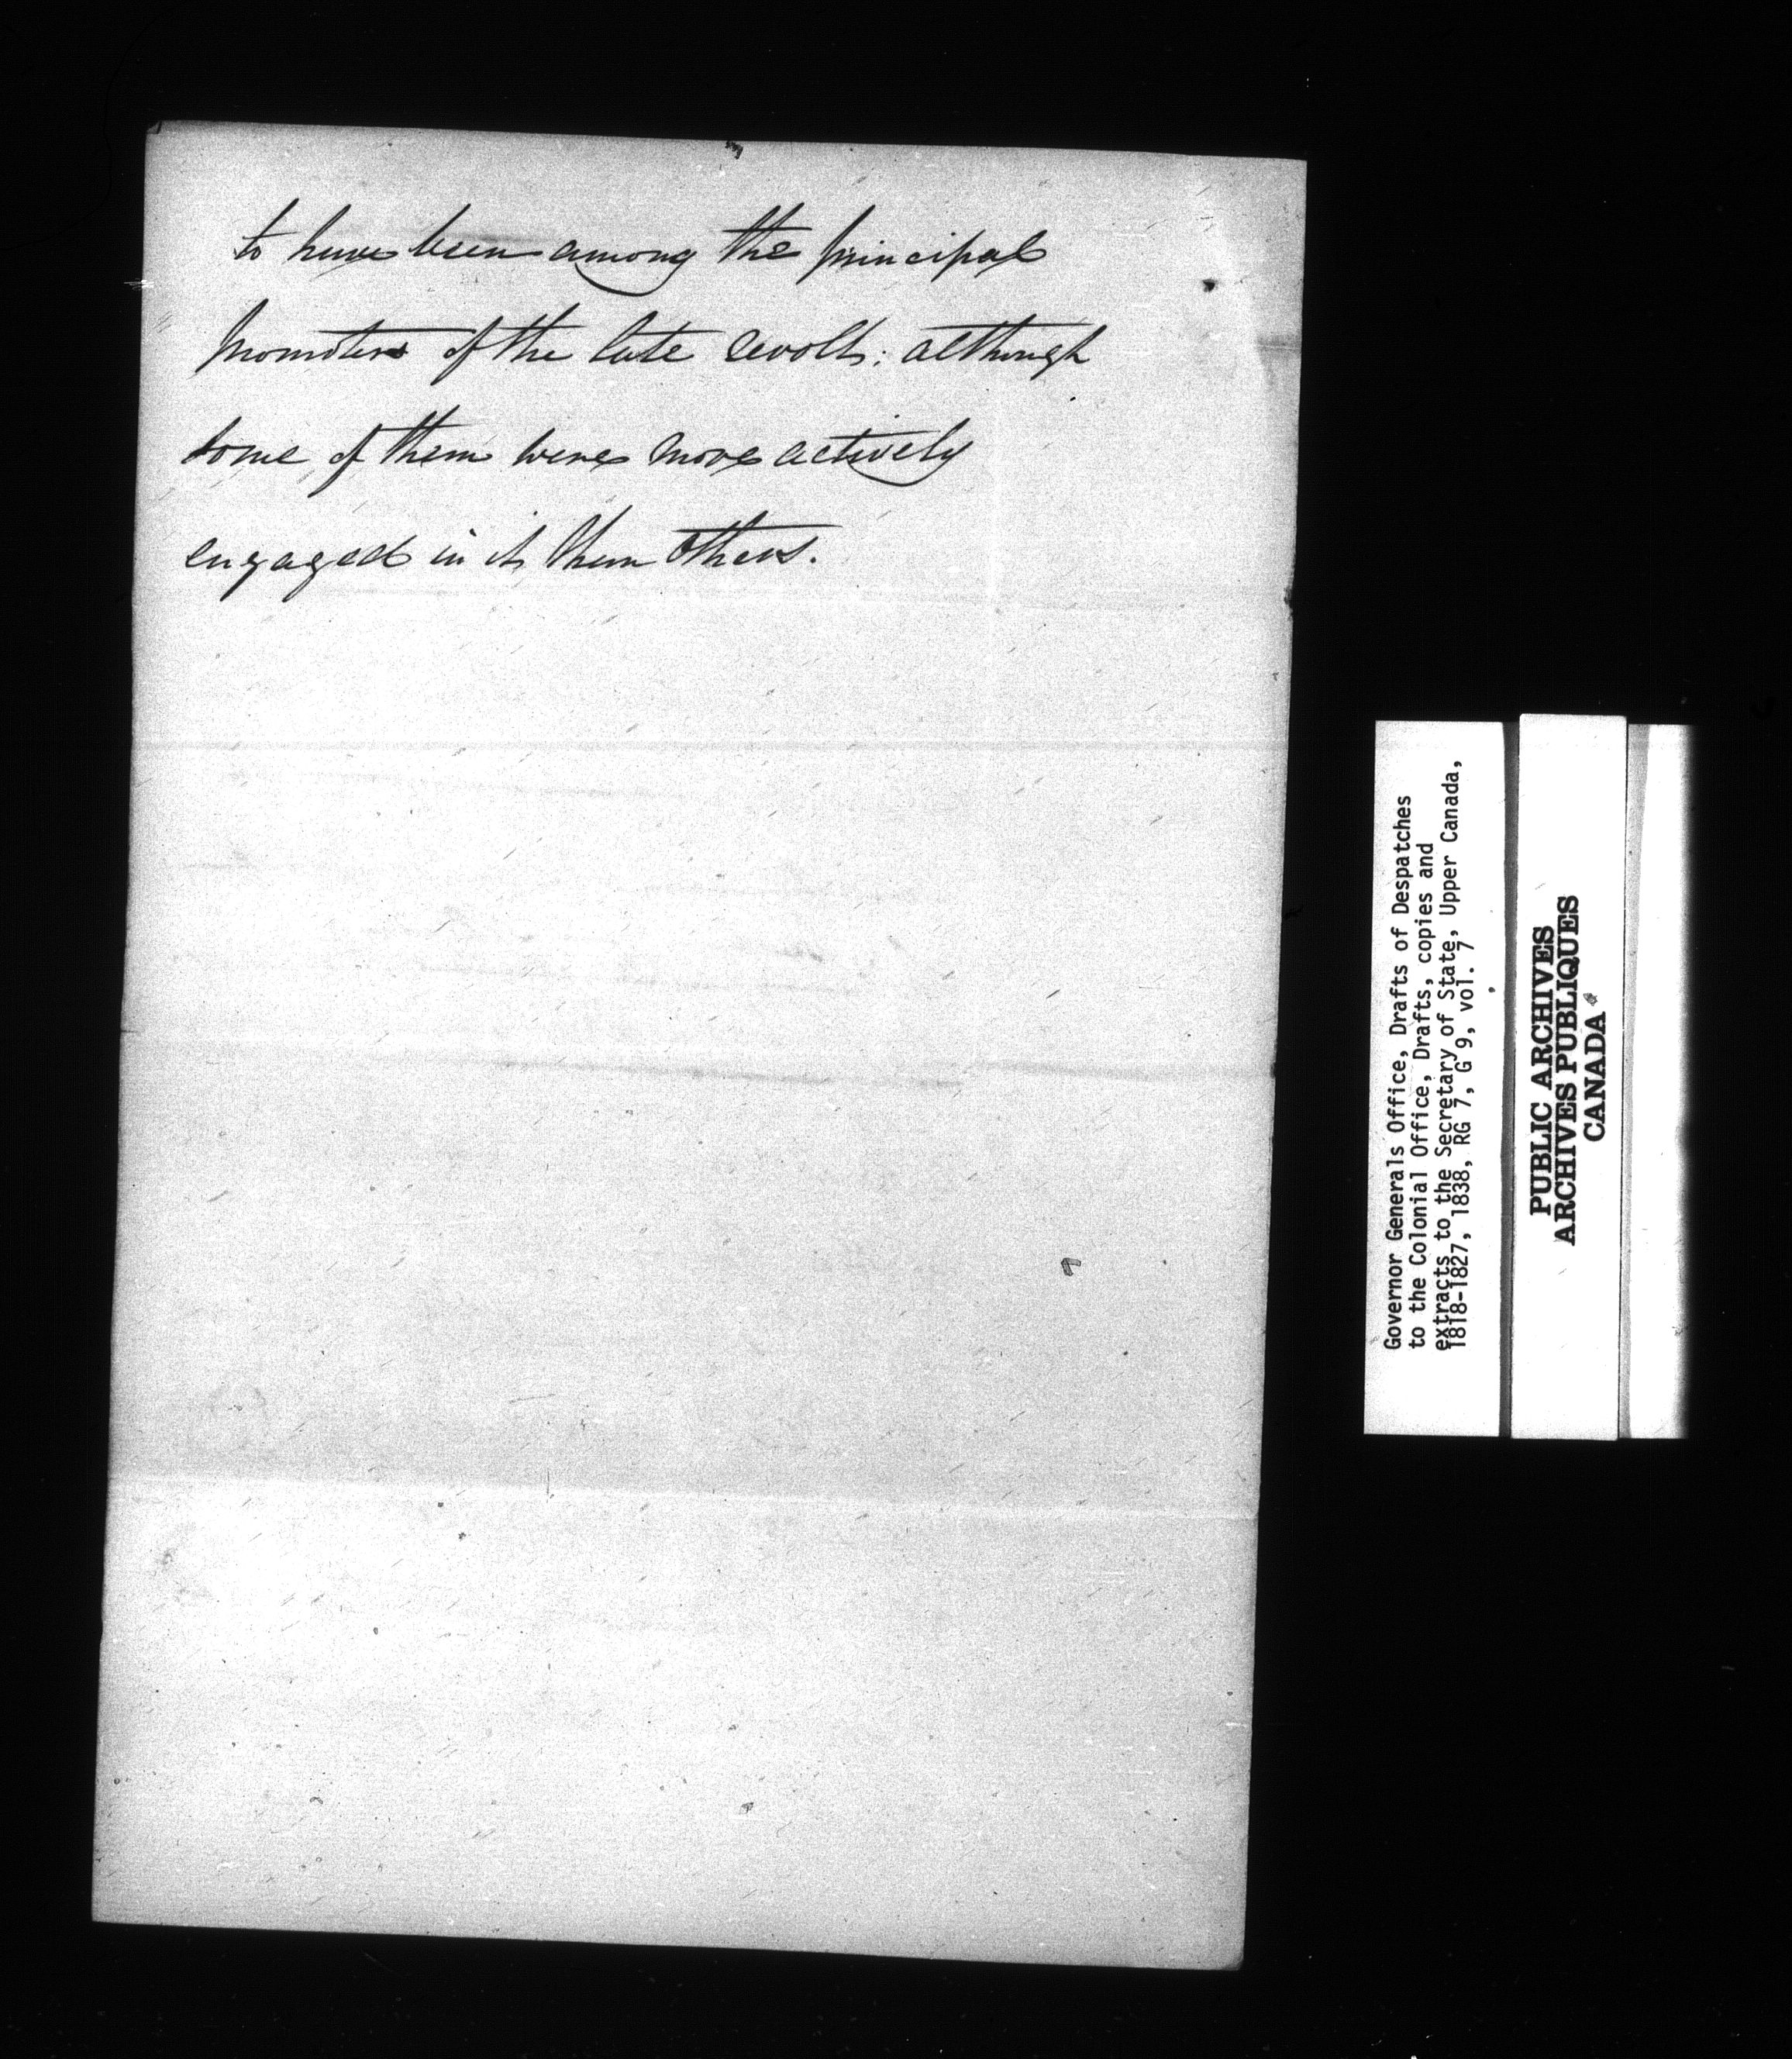 to have been among the principal
promoters of the late revolt; although
some of them were more actively
engaged in it than others.
Governor Generals Office, Drafts of Despatches
to the Colonial Office, Drafts, copies and
extracts to the Secretary of State, Upper Canada,
1818-1827, 1838, RG 7, G 9, vol. 7
PUBLIC ARCHIVES
ARCHIVES PUBLIQUES
CANADA